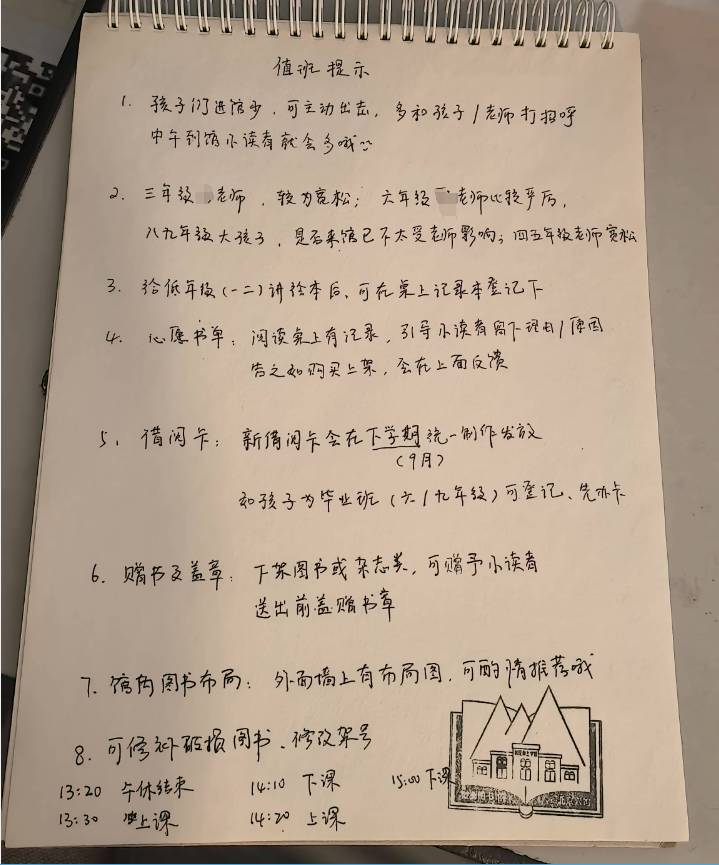 值班提示
1. 孩子们进馆少，可主动出击，多和孩子/老师打招呼
中午到馆小读者就会多哦
2. 三年级 老师，较为宽松；六年级 老师比较严厉，
八九年级大孩子，是否来馆已不太受老师影响；四五年级老师宽松
3. 给低年级(一二)讲绘本后、可在桌上记录本登记下
4. 心愿书单：阅读桌上有记录，引导小读者留下理由/原因
告之如购买上架，会在上面反馈
5. 借阅卡：新借阅卡会在下学期统一制作发放
(9月)
如孩子为毕业班(六/九年级)可登记、先办卡
6. 赠书及盖章：下架图书或杂志类，可赠予小读者
送出前盖赠书章
7. 馆内图书布局：外面墙上有布局图，可酌情推荐哦
8. 可修补破损图书、修改架号
13:20 午休结束 14:10 下课 15:00 下课
13:30 上课 14:20 上课